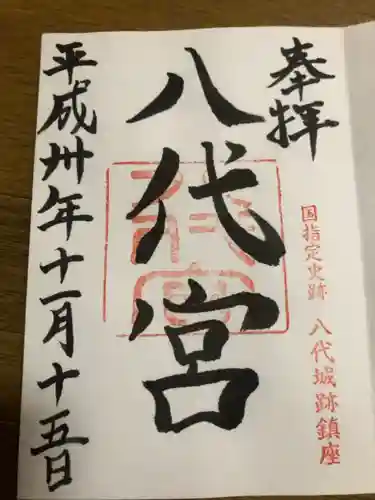 奉拝
国指定史跡 八代城跡鎮座
八代宮
平成卅年十一月十五日